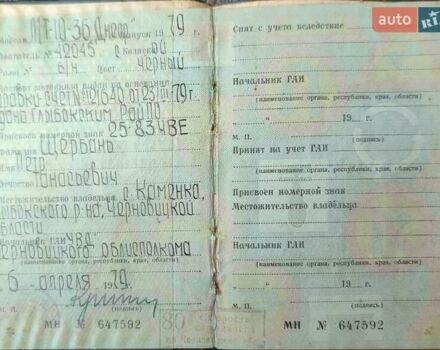 МТ-10-36 Днепр выпуск 1979 г.
42045 с коляской
Рама № б/н Цвет черный
справки-счет № 121640 от 23
г.
дана Глыбокским РайПО
Присвоен номерной знак 25-83 ЧВЕ
Щербань
Петр
Отчество Танасьевич
Местожительство владельца с. Каменка,
Глыбокского р-на, Черновицкой
области
Начальник ГАИ УВД
Черновицкого облисполкома
(наименование органа, республики, края, области)
6 апреля 1979 г.
М. П. (подпись)
МН № 647592
Снят с учета вследствие
Начальник ГАИ
(наименование органа, республики, края, области)
" " 19 г.
М. П. (подпись)
Принят на учет ГАИ
(наименование органа, республики, края, области)
Присвоен номерной знак
Местожительство владельца
Начальник ГАИ
(наименование органа, республики, края, области)
" " 19 г.
М. П. (подпись)
МН № 647592
80
auto
RIA